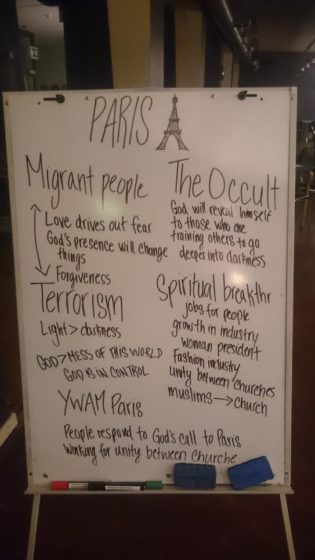 PARIS
Migrant people
Love drives out fear
God's presence will change
things
Forgiveness
Terrorism
Light > darkness
GOD > MESS OF THIS WORLD
GOD IS IN CONTROL
The Occult
God will reveal himself
to those who are
training others to go
deeper into darkness
Spiritual breakthr
jobs for people
growth in industry
woman president
fashion industry
unity between churches
muslims → church
YWAM Paris
People respond to God's call to Paris
Working for unity between churche